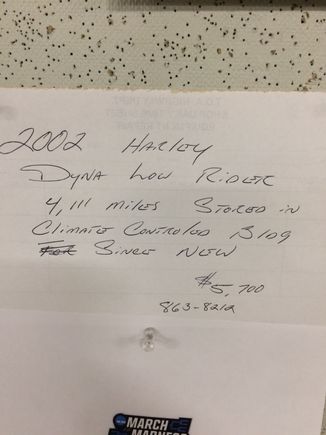 2002 HARLEY
DYNA LOW RIDER
4,111 MILES STORED IN
CLIMATE CONTROLED BLDG
FOR SINCE NEW
$5,700
863-8212
MARCH
MADNESS